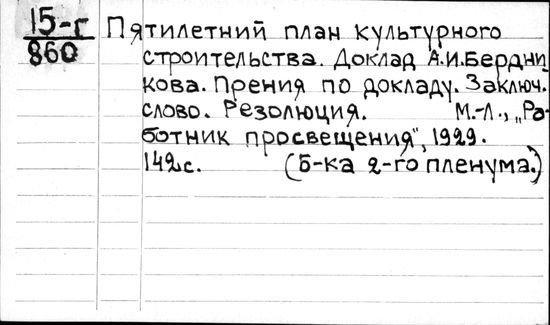 15-г
860
Пятилетний план культурного
строительства. Доклад А.И.Бердни-
кова. Прения по докладу. Заключ.
слово. Резолюция. М.-Л., „Ра-
ботник просвещения", 1929.
142с. (Б-ка 2-го пленума.)